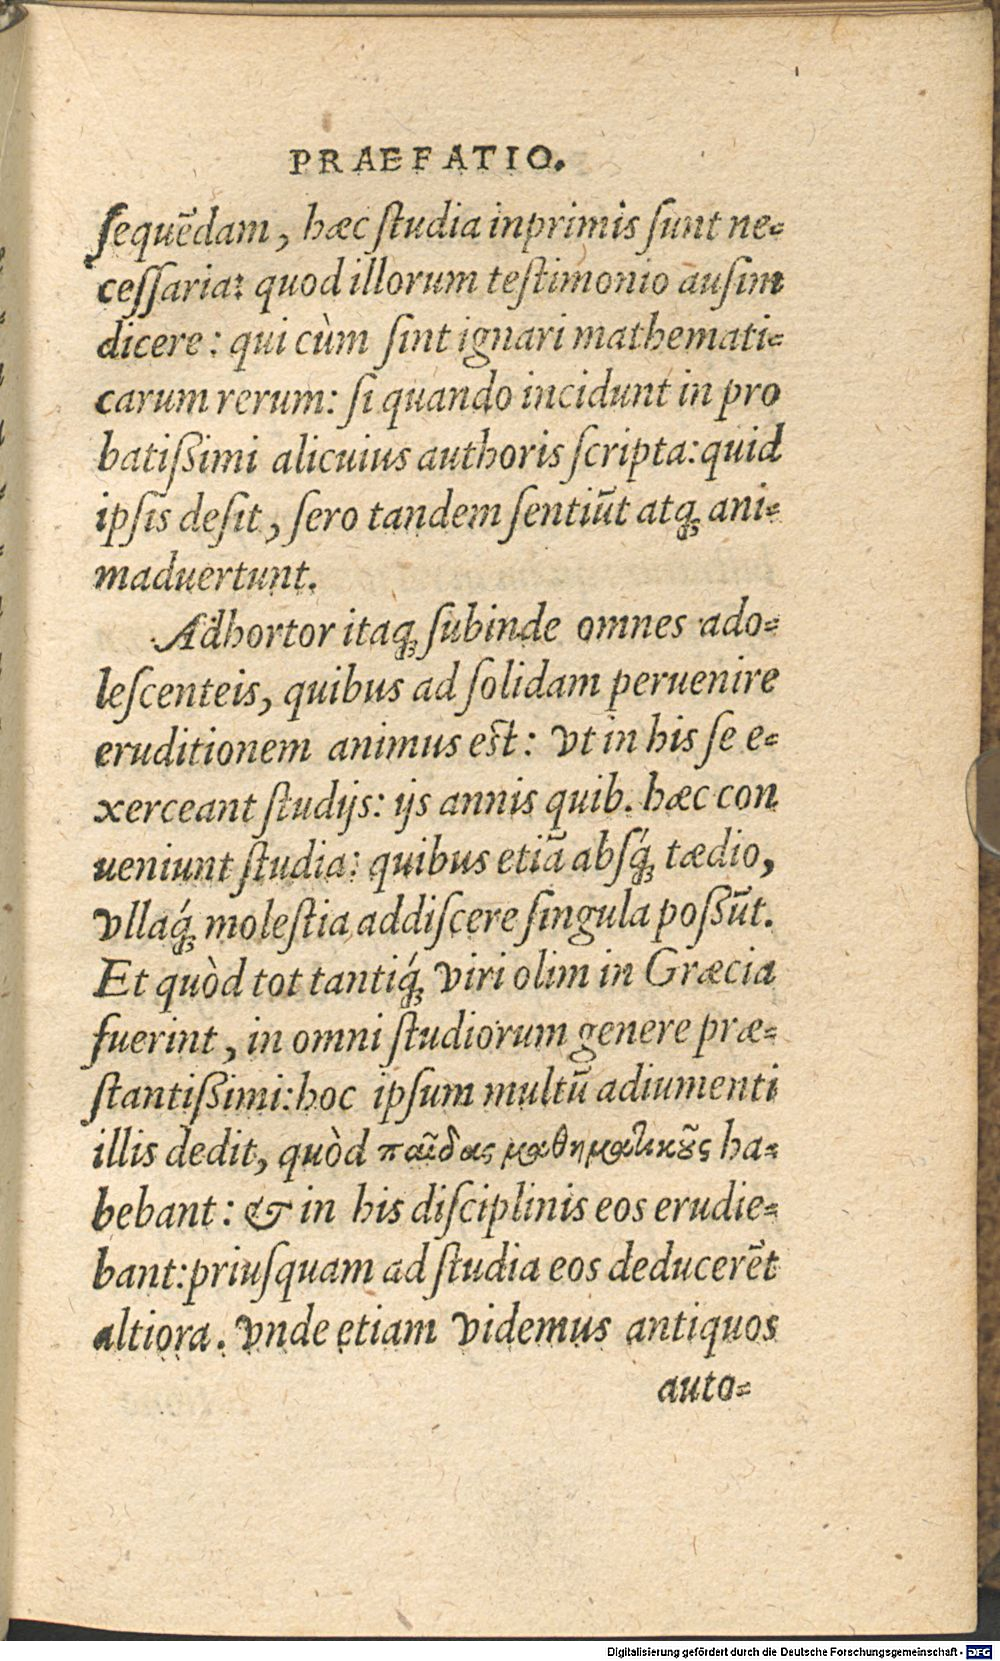 PRAEFATIO.
ſequẽdam, hæc ſtudia inprimis ſunt ne=
ceſſaria: quod illorum teſtimonio auſim
dicere: qui cùm ſint ignari mathemati=
carum rerum: ſi quando incidunt in pro
batißimi alicuius authoris ſcripta: quid
ipſis deſit, ſero tandem ſentiũt atq; ani=
maduertunt.
Adhortor itaq; ſubinde omnes ado=
leſcenteis, quibus ad ſolidam peruenire
eruditionem animus eſt: vt in his ſe e=
xerceant ſtudijs: ijs annis quib. hæc con
ueniunt ſtudia: quibus etiã abſq́; tædio,
vllaq́; moleſtia addiſcere ſingula poßũt.
Et quòd tot tantiq́; viri olim in Græcia
fuerint, in omni ſtudiorum genere præ=
ſtantißimi: hoc ipſum multũ adiumenti
illis dedit, quòd παῖδας μαθηματικοὺς ha=
bebant: & in his diſciplinis eos erudie=
bant: priuſquam ad ſtudia eos deducerẽt
altiora. vnde etiam videmus antiquos
auto=
Digitalisierung gefördert durch die Deutsche Forschungsgemeinschaft - DFG